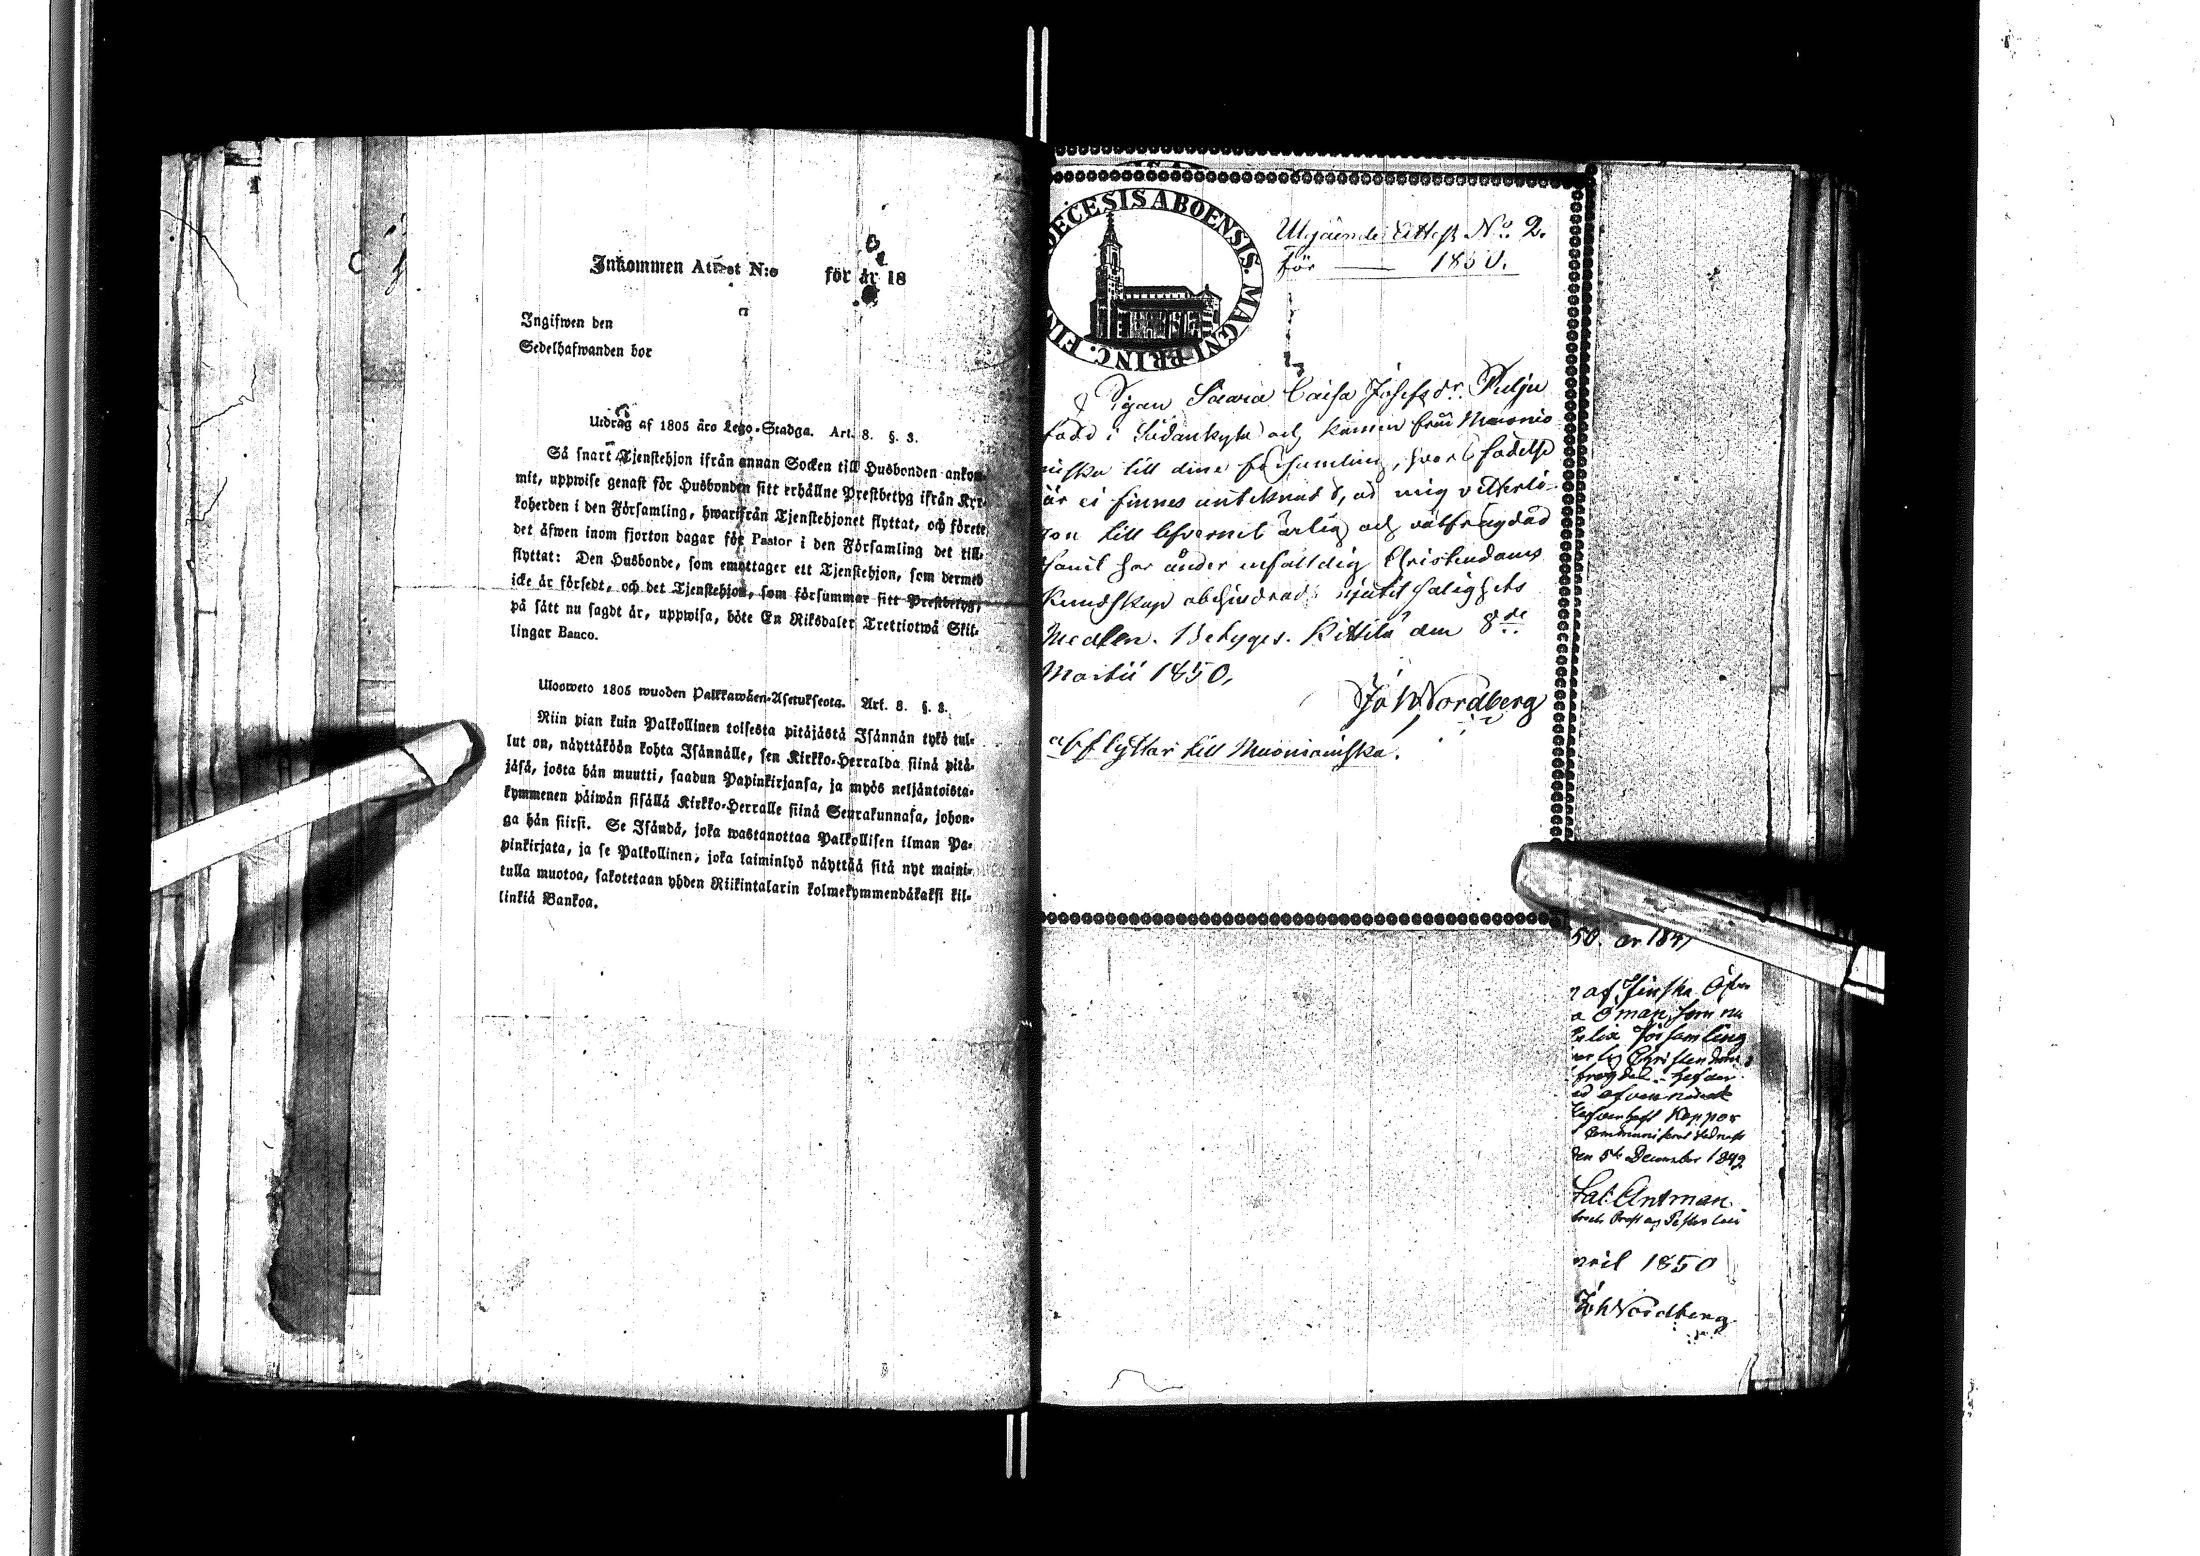 Inkommen Attest N:o för år 18
Ingifwen den
Sedelhafwanden bor
Utdrag af 1805 års Lego-Stadga. Art. 8. §. 3.
Så snart Tjenstehjon ifrån annan Socken till Husbonden ankom-
mit, uppwise genast för Husbonden sitt erhållne Prestbetyg ifrån Kyr-
koherden i den Församling, hwarifrån Tjenstehjonet flyttat, och förete
det äfwen inom fjorton dagar för Pastor i den Församling det till-
flyttat: Den Husbonde, som emottager ett Tjenstehjon, som dermed
icke är försedt, och det Tjenstehjon, som försummar sitt Prestbetyg,
på sätt nu sagdt är, uppwisa, böte En Riksdaler Trettiotwå Skil-
lingar Banco.
Ulosweto 1805 wuoden Palkkawäen-Asetuksesta. Art. 8. §. 3.
Niin pian kuin Palkollinen toisesta pitäjästä Isännän tykö tul-
lut on, näyttäköön kohta Isännälle, sen Kirkko-Herralda siinä pitä-
jäsä, josta hän muutti, saadun Papinkirjansa, ja myös neljäntoista-
kymmenen päiwän sisällä Kirkko-Herralle siinä Seurakunnasa, johon-
ga hän siirsi. Se Isändä, joka wastanottaa Palkollisen ilman Pa-
pinkirjata, ja se Palkollinen, joka laiminlyö näyttää sitä nyt maini-
tulla muotoa, sakotetaan yhden Riikintalarin kolmekymmendäkaksi kil-
linkiä Bankoa.
DECESIS ABOENSIS. MAGNI PRINC. FIN
Utgående Attest No. 2.
för 1850.
Pigan Saara Caisa Josefsdr. Pulju
född i Sodankylä och kommen från Muonio
niska till dine församling, hvars födelse
år ei finnes antecknadt, ad mig
till lefvernet ärlig och välfrägdad
samt har under enfaldig Christendoms
Kundskap obehindrad njutit salighets
Medlen. Betyges. Kittilä den 8de
Martii 1850.
Joh Nordberg
afflyttar till Muonioniska.
50. år 1847
af Finska
a Öman, som nu
församling
Christendoms
frägdad
Koppor
den 5te December 1849
Antman
pril 1850
Joh Nordberg